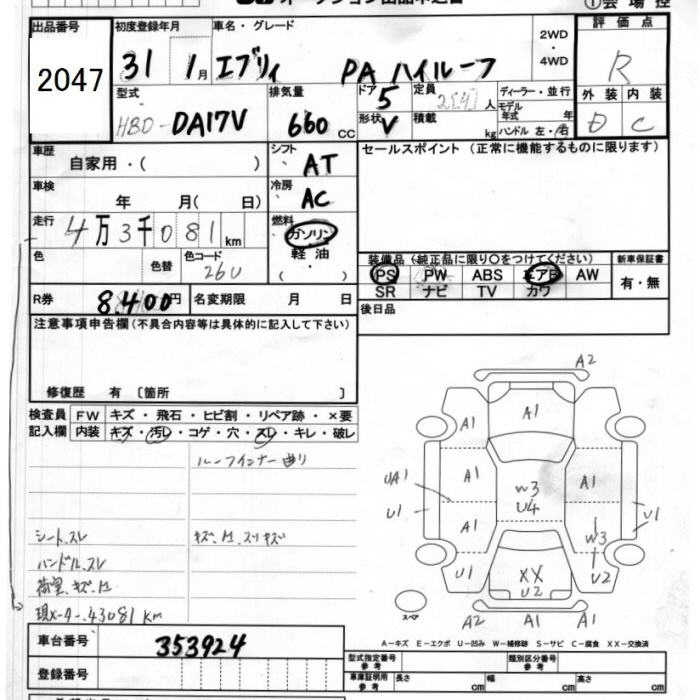 オークション出品申込書
①会場控
出品番号 初度登録年月 車名・グレード 2WD・4WD 評価点
2047 31 1月 エブリィ PA ハイルーフ R
型式 排気量 ドア 定員 ディーラー・並行 外装 内装
HBD-DA17V 660cc 5 2[4]人 モデル年式 年 D C
形状 V 積載 kg ハンドル 左・右
車歴 シフト セールスポイント(正常に機能するものに限ります)
自家用・( ) AT
車検 冷房
年 月( 日) AC
走行 燃料
4万3千081km ガソリン
軽油
・( )
色 色替 色コード 26U
装備品(純正品に限り〇をつけてください) 新車保証書
PS PW ABS エアB AW 有・無
SR ナビ TV カワ
R券 8400円 名変期限 月 日
後日品
注意事項申告欄(不具合内容等は具体的に記入して下さい)
修復歴 有 〔箇所 〕
検査員 FW キズ・飛石・ヒビ割・リペア跡・×要
記入欄 内装 キズ・汚レ・コゲ・穴・スレ・キレ・破レ
ルーフインナー曲り
シート、スレ キズ、凹、スリキズ
ハンドル、スレ
荷室、キズ、凹
現メーター、43081km
A2
A1
A1
UA1 A1 A1
W3
U4
U1 A1 W3 U1
U1 XX U2
U2
スペア
A2 A1 A1
車台番号 353924
A-キズ E-エクボ U-凹み W-補修跡 S-サビ C-腐食 XX-交換済
登録番号
型式指定番号 類別区分番号
車庫証明用参考 長さ cm 幅 cm 高さ cm